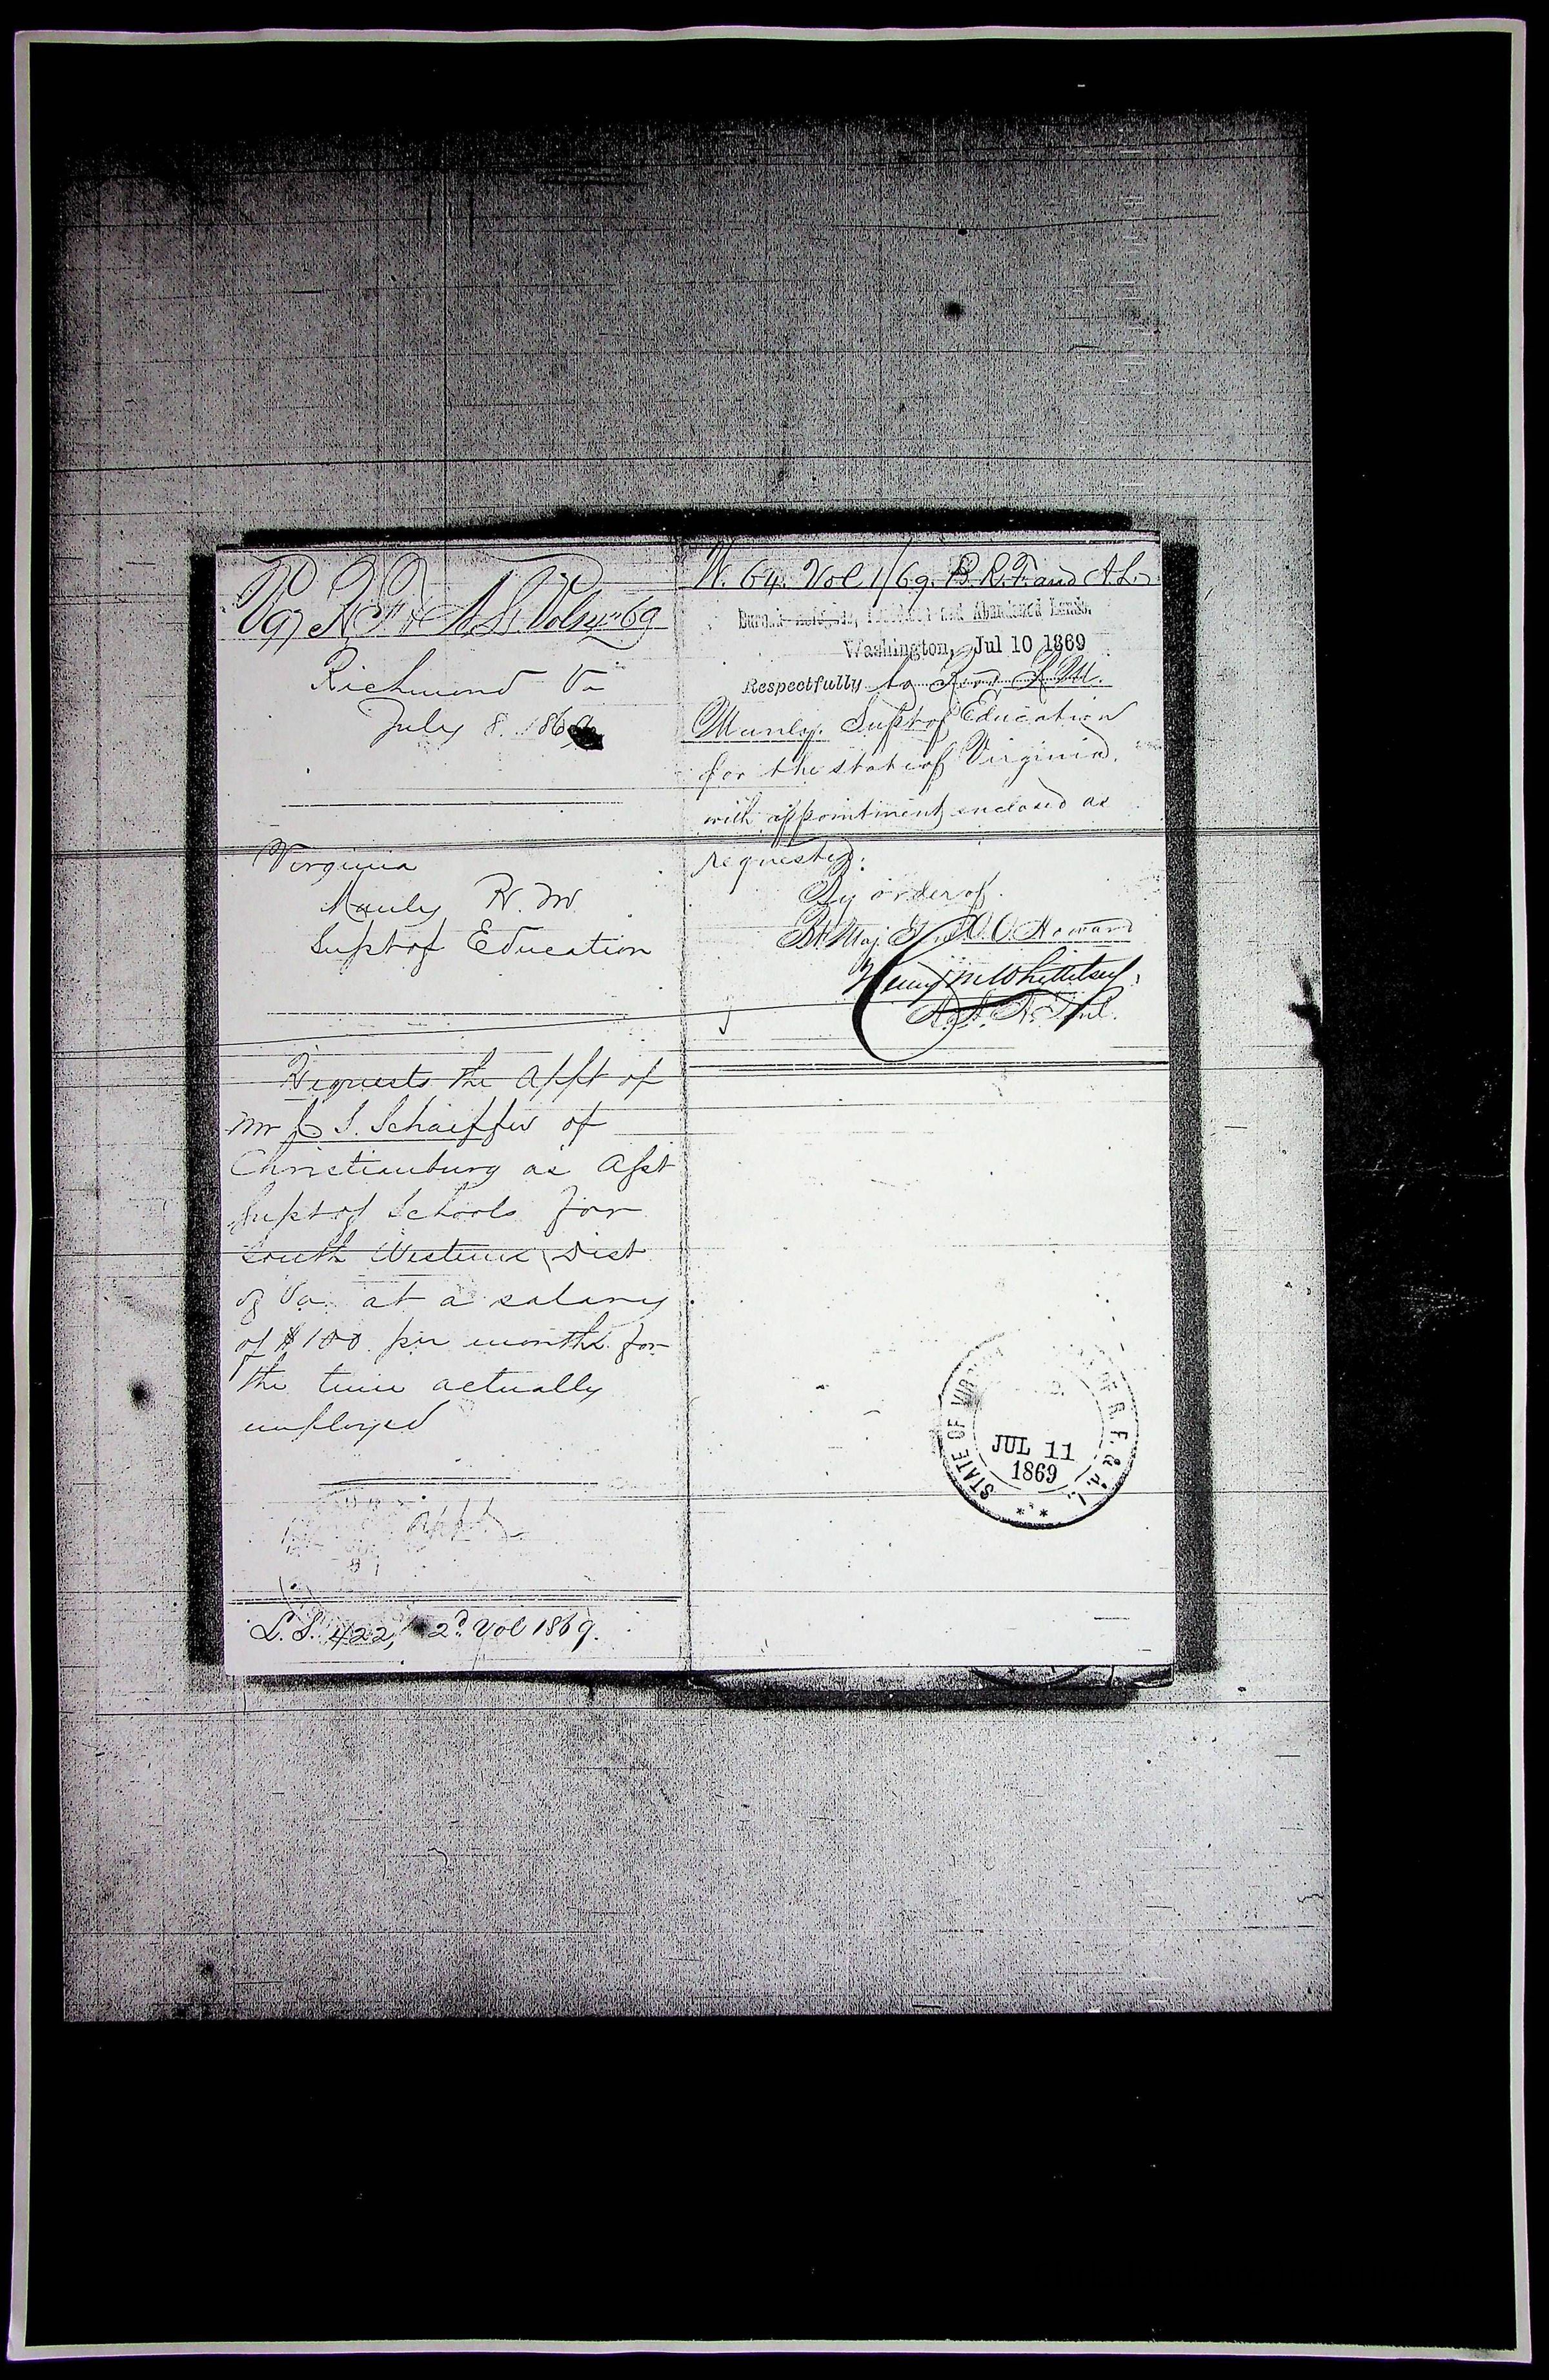 Richmond Va
July 8. 1869
Virginia
Manly R. M
Supt of Education
Requests the Appt of
Mr C S. Schaeffer of
Christiansburg as Asst
Supt of Schools for
South Western Dist
of Va. at a salary
of $100. per month for
the time actually
employed
Appt
L. S. 422, 2d Vol 1869.
W. 64. Vol 1/69. B. R. F. and A. L.
Bureau Refugees, Freedmen and Abandoned Lands,
Washington, Jul 10 1869
Respectfully to Rev. R. M.
Manly. Supt of Education
for the state of Virginia.
with appointment enclosed as
requested.
By order of
Bt Maj. Gen. O. O. Howard
Henry M Whittelsey,
STATE OF VIR OF R. F. & A. L.
JUL 11
1869